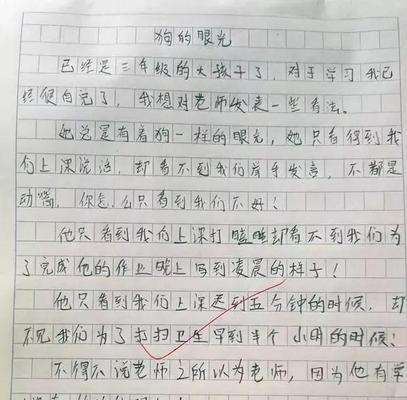 狗的眼光
已经是三年级的大孩子了，对于学习我已
经便自觉了，我想对老师发表一些看法。
她总是有着狗一样的眼光，她只看得到我
们上课说话，却看不到我们举手发言，不都是
动嘴，你怎么只看到我们不好！
他只看到我们上课打瞌睡却看不到我们为
了完成他的作业晚上写到凌晨的样子！
他只看到我们上课迟到五分钟的时候，却
不见我们为了打扫卫生早到半个小时的时候！
不得不说老师之所以为老师，因为他有学